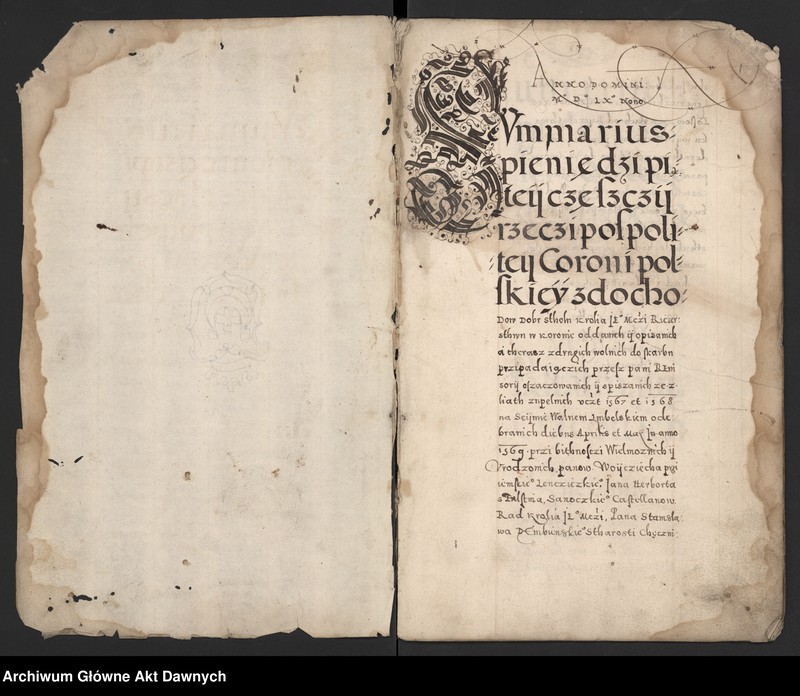 ANNO DOMINI
M° D° LX° Nono
Summarius
pieniędzi pi-
teÿ częſzczÿ
rzeczi poſpoli-
teÿ Coroni pol-
ſkieÿ z docho-
Dow Dobr Stholu Krolia Je° Meżi Ricer-
sthwu w koronie oddanich ÿ opisanich
a theraz z drugich wolnich do ſkarbu
przipadaiączich przesz pani Rewi
sorÿ oszaczowanich ÿ spiszanich ze z-
liath zupelnich uczt 1567 et 1568
na Seijmie Walnem Lubelskiem ode-
branich diebus Aprilis et Maÿ In anno
1569 przi bithnoſzi Wielmoznich ÿ
Vrodzonich panow Woijcziecha prji
iemskie° Lencziczkie° Jana Herborta
s Fulstina, Sanoczkie° Caſtellanow
Rad Krolia Je° Meżi, Pana Stanisla
wa DEmbinskie° Stharosti Chęczin:
Archiwum Główne Akt Dawnych